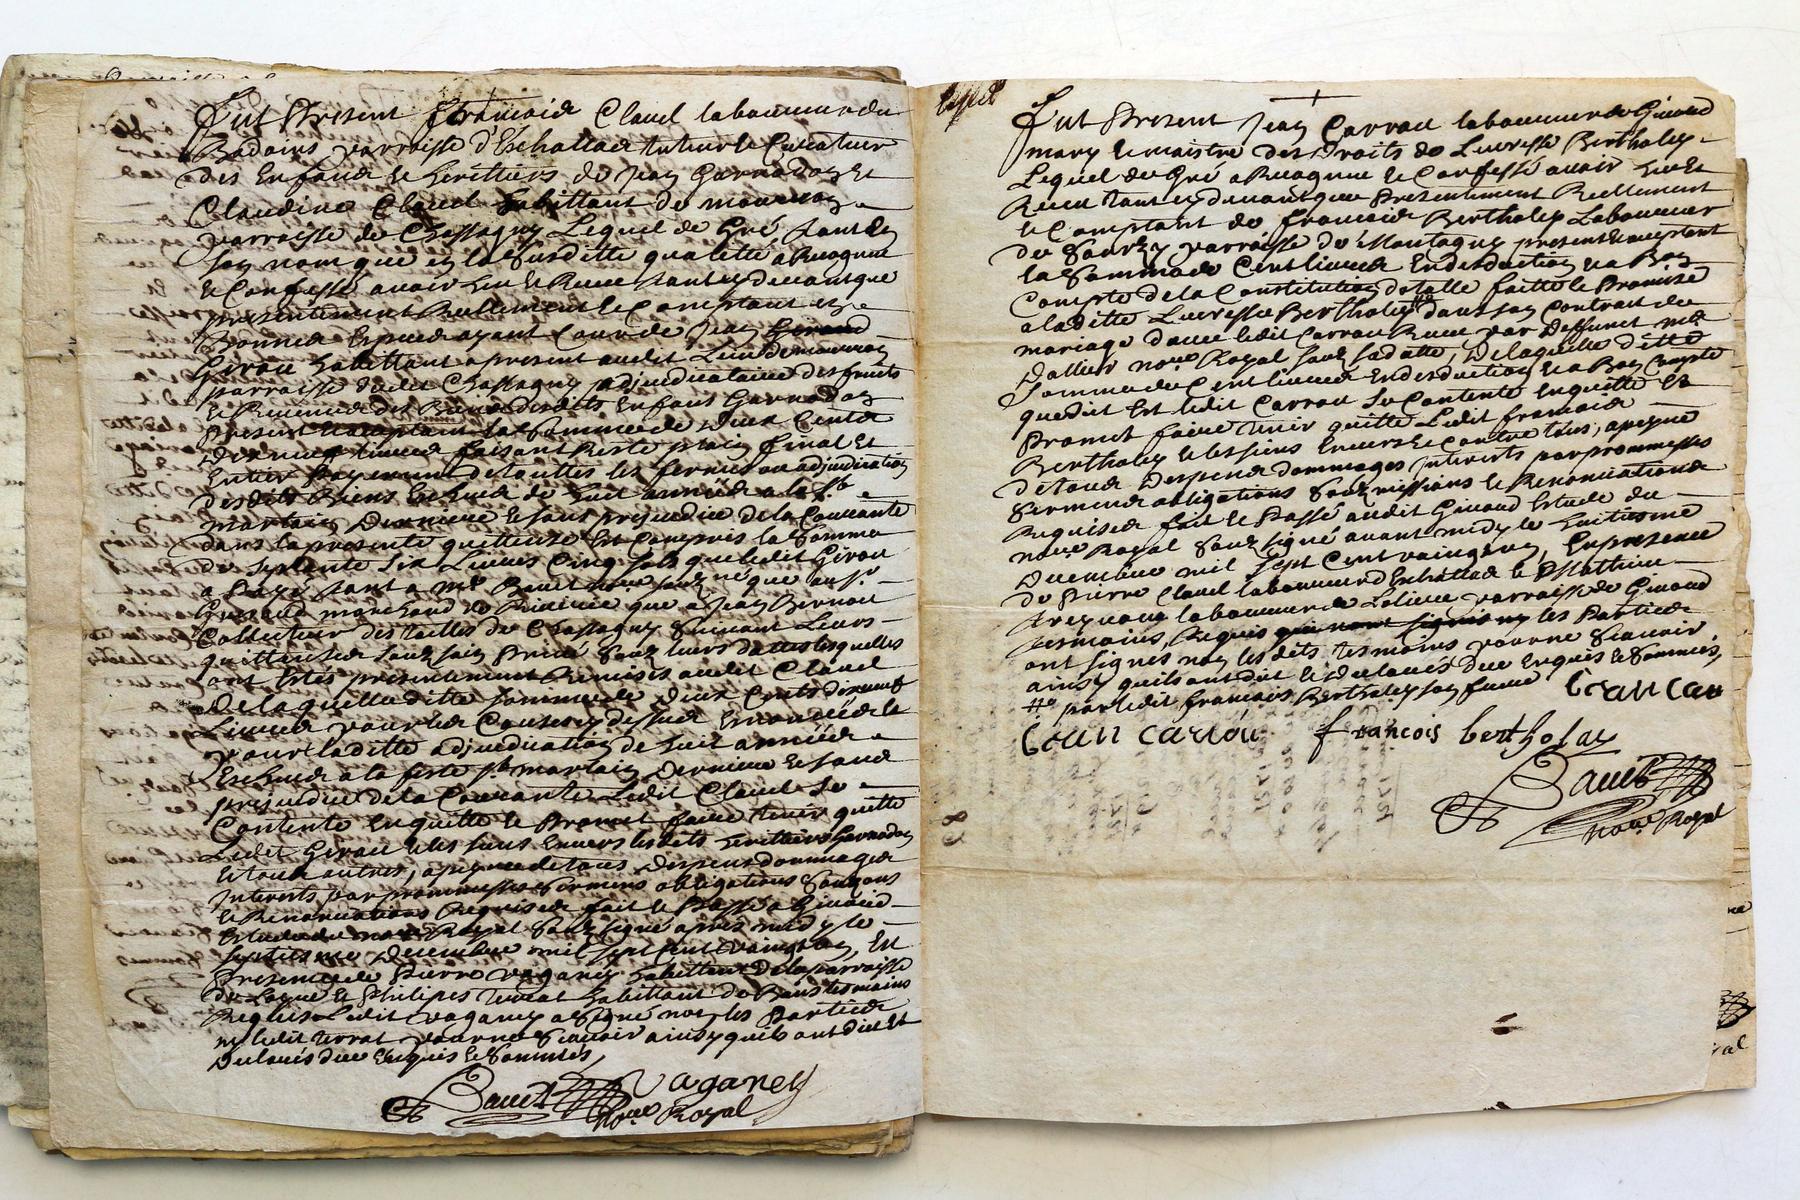 Fut Present François Claud laboureur du
Badoins parroisse d'Echallas tuteur et Curateur
des Enfans et heritiers de Jean Garnodon Et
Claudine Claud habittant de
parroisse de Chassagny Lequel de Gré tant En
son nom que en la susditte qualitté a Recognu
et Confessé avoir heu et Receu tant cy devant que
presentement Reellement et Comptant en
Bonnes Especes ayant Cour de Jean Giroud
Girou habittant apresent audit Lieu de
parroisse dudit Chassagny adjudicataire des fruits
et Revenus des Biens desdits Enfans Garnodon
Present et acceptant la Somme de deux Cents
dixneuf livres faisant Reste plain final Et
Entier Payement de touttes les fermes ou adjudication
desdits Biens Echues de huit années a la St
martain Derniere et sans prejudice de la Courante
dans la presente quittence Est Compris la Somme
de septente six Livres Cinq sols que ledit Girou
a Payé tant a Me Bauet que au Sr
marchand de que a Jean
Collecteur des tailles de Chassagny Suivant Leurs
quittences Souz sein Privé Souz leurs dattes lesquelles
ont Estés presentement Remises audit Claud
De laquelle ditte somme de deux Cents dixneuf
Livres pour les Causes cy dessus Enoncées Et
pour laditte adjudication de huit années
Echues a la feste St martain Derniere Et sans
prejudice de la Courante Ledit Claud se
Contente En quitte et Promet faire tenir quitte
Ledit Girou et les siens Envers lesdits heritiers Garnodon
et tous autres, a peyne de tous despens dommages
Interets par promesses Sermens obligations Soumissions
et Renonciations Requises fait et Passé a Givord
Estude du nore Royal Souz signé apres midy le
septieme Decembre mil sept Cent vaingt un, En
Presence de Pierre vaganey habittant de la parroisse
de et Philipes terrat habittant de tesmains
Requis Ledit vaganey a signé non les Parties
ny ledit terrat pour ne Sçavoir ainsy quils ont dit Et
Declarés due Enquis et Sommés,
Bauet Vaganey
nore Royal
Fut Present Jean Carrou laboureur de Givord
mary et maistre des Droits de Lucresse Bertholey
Lequel de Gré a Recognu et Confessé avoir heu Et
Receu tant cy devant que Presentement Reellement
et Comptant de francois Bertholey Laboureur
de Sourzy parroisse de Montagny present et acceptant
la Somme de Cent livres En desduction et a Bon
Compte de la Constitution dotalle faitte et Promise
a laditte Lucresse Bertholey # dans son Contrait de
mariage avec ledit Carrou Receu par Deffunct Me
Dallier nore Royal Souz sa datte, De laquelle ditte
Somme de Cent livres En desduction et a Bon Compte
que dict Est ledit Carrou Se Contente En quitte Et
Promet faire tenir quitte Ledit francois
Bertholey et les siens Envers et Contre tous, a peyne
de tous Despens dommages Interets par promesses
Sermens obligations Soubzmissions et Renonciations
Requises fait et Passé audit Givord Estude du
nore Royal Souz signé avant midy le huitieme
Decembre mil sept Cent vaingt un, En presence
de Pierre Claud laboureur d'Echallas et Matthieu
laboureur de parroisse de Givord
tesmoins, Requis qui n'ont signé ny les Parties
ont signés non lesdits tesmoins pour ne Sçavoir
ainsy quils ont dit et declarés due Enquis et Sommés,
# par ledit francois Bertholey son frere Jean Carou
Jean Carrou françois bertholay
Bauet
nore Royal